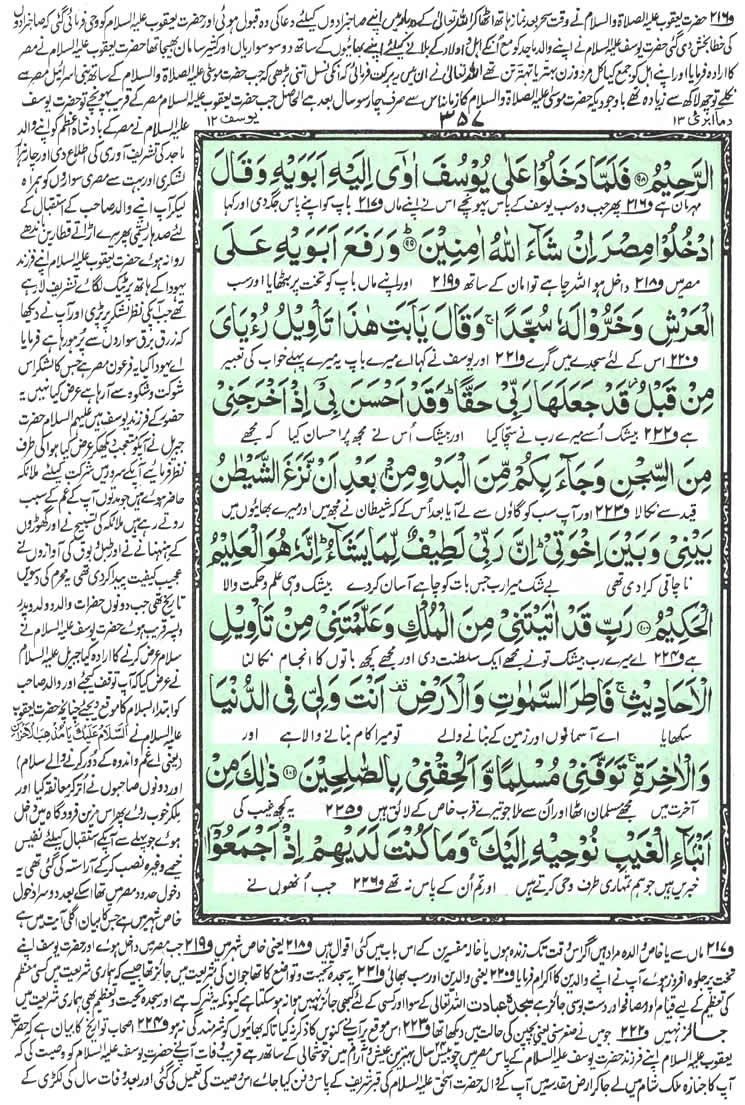 و۲۱۶ حضرت یعقوب علیہ الصلاۃ والسلام نے وقت سحر بعد نماز ہاتھ اٹھا کر اللہ تعالیٰ کے دربار میں اپنے صاحبزادوں کیلئے دعا کی وہ قبول ہوئی اور حضرت یعقوب علیہ السلام کو وحی فرمائی گئی کہ صاحبزادوں
کی خطا بخش دی گئی حضرت یوسف علیہ السلام نے اپنے والد ماجد کو مع انکے اہل و اولاد کے بلانے کیلئے اپنے بھائیوں کے ساتھ دو سو سواریاں اور کثیر سامان بھیجا تھا حضرت یعقوب علیہ السلام نے مصر
کا ارادہ فرمایا اور اپنے اہل کو جمع کیا کل مرد و زن بہتر یا تہتر تن تھے اللہ تعالیٰ نے ان میں یہ برکت فرمائی کہ انکی نسل اتنی بڑھی کہ جب حضرت موسیٰ علیہ الصلاۃ والسلام کے ساتھ بنی اسرائیل مصر سے
نکلے تو چھ لاکھ سے زیادہ تھے باوجودیکہ حضرت موسیٰ علیہ الصلاۃ والسلام کا زمانہ اس سے صرف چار سو سال بعد ہے الحاصل جب حضرت یعقوب علیہ السلام مصر کے قریب پہونچے تو حضرت یوسف
وما ابرئ ۱۳
۳۵۷
یوسف ۱۲
الرَّحِیْمُ ﴿۹۸﴾ فَلَمَّا دَخَلُوْا عَلٰی یُوْسُفَ اٰوٰۤی اِلَیْهِ اَبَوَیْهِ وَ قَالَ
مہربان ہے و۲۱۶ پھر جب وہ سب یوسف کے پاس پہونچے اس نے اپنے ماں و۲۱۷ باپ کو اپنے پاس جگہ دی اور کہا
ادْخُلُوْا مِصْرَ اِنْ شَآءَ اللّٰهُ اٰمِنِیْنَ ﴿۹۹﴾ وَ رَفَعَ اَبَوَیْهِ عَلَی
مصر میں و۲۱۸ داخل ہو اللہ چاہے تو امان کے ساتھ و۲۱۹ اور اپنے ماں باپ کو تخت پر بٹھایا اور سب
الْعَرْشِ وَ خَرُّوْا لَهٗ سُجَّدًا ۚ وَ قَالَ یٰۤاَبَتِ هٰذَا تَاْوِیْلُ رُءْیَایَ
و۲۲۰ اس کے لئے سجدے میں گرے و۲۲۱ اور یوسف نے کہا اے میرے باپ یہ میرے پہلے خواب کی تعبیر
مِنْ قَبْلُ ؗ قَدْ جَعَلَهَا رَبِّیْ حَقًّا ؕ وَ قَدْ اَحْسَنَ بِیْۤ اِذْ اَخْرَجَنِیْ
ہے و۲۲۲ بیشک اسے میرے رب نے سچا کیا اور بیشک اُس نے مجھ پر احسان کیا کہ مجھے
مِنَ السِّجْنِ وَ جَآءَ بِكُمْ مِّنَ الْبَدْوِ مِنْۢ بَعْدِ اَنْ نَّزَغَ الشَّیْطٰنُ
قید سے نکالا و۲۲۳ اور آپ سب کو گاؤں سے لے آیا بعد اُس کے کہ شیطان نے مجھ میں اور میرے بھائیوں میں
بَیْنِیْ وَ بَیْنَ اِخْوَتِیْ ؕ اِنَّ رَبِّیْ لَطِیْفٌ لِّمَا یَشَآءُ ؕ اِنَّهٗ هُوَ الْعَلِیْمُ
ناچاقی کرا دی تھی بے شک میرا رب جس بات کو چاہے آسان کر دے بیشک وہی علم و حکمت والا
الْحَكِیْمُ ﴿۱۰۰﴾ رَبِّ قَدْ اٰتَیْتَنِیْ مِنَ الْمُلْكِ وَ عَلَّمْتَنِیْ مِنْ تَاْوِیْلِ
ہے و۲۲۴ اے میرے رب بیشک تو نے مجھے ایک سلطنت دی اور مجھے کچھ باتوں کا انجام نکالنا
الْاَحَادِیْثِ ۚ فَاطِرَ السَّمٰوٰتِ وَ الْاَرْضِ ۫ اَنْتَ وَلِیّٖ فِی الدُّنْیَا
سکھایا اے آسمانوں اور زمین کے بنانے والے تو میرا کام بنانے والا ہے اور
وَ الْاٰخِرَةِ ۚ تَوَفَّنِیْ مُسْلِمًا وَّ اَلْحِقْنِیْ بِالصّٰلِحِیْنَ ﴿۱۰۱﴾ ذٰلِكَ مِنْ
آخرت میں مجھے مسلمان اٹھا اور اُن سے ملا جو تیرے قرب خاص کے لائق ہیں و۲۲۵ یہ کچھ غیب کی
اَنْۢبَآءِ الْغَیْبِ نُوْحِیْهِ اِلَیْكَ ۚ وَ مَا كُنْتَ لَدَیْهِمْ اِذْ اَجْمَعُوْۤا
خبریں ہیں جو ہم تمہاری طرف وحی کرتے ہیں اور تم اُن کے پاس نہ تھے و۲۲۶ جب اُنھوں نے
علیہ السلام نے مصر کے بادشاہ اعظم کو اپنے والد
ماجد کی تشریف آوری کی اطلاع دی اور چار ہزار
لشکری اور بہت سے مصری سواروں کو ہمراہ
لیکر آپ اپنے والد صاحب کے استقبال کے
لئے صدہا ریشمی پھریرے اڑاتے قطاریں باندھے
روانہ ہوئے حضرت یعقوب علیہ السلام اپنے فرزند
یہودا کے ہاتھ پر ٹیک لگائے تشریف لا رہے
تھے جب آپکی نظر لشکر پر پڑی اور آپ نے دیکھا
کہ زرق برق سواروں سے پر ہو رہا ہے فرمایا
اے یہودا کیا یہ فرعون مصر ہے جس کا لشکر اس
شوکت و شکوہ سے آ رہا ہے عرض کیا نہیں یہ
حضور کے فرزند یوسف ہیں علیہم السلام حضرت
جبریل نے آپکو متعجب دیکھ کر عرض کیا ہوا کی طرف
نظر فرمائیے آپکے سرور میں شرکت کیلئے ملائکہ
حاضر ہوئے ہیں جو مدتوں آپ کے غم کے سبب
روتے رہے ہیں ملائکہ کی تسبیح نے اور گھوڑوں
کے ہنہنانے نے اور طبل و بوق کی آوازوں نے
عجیب کیفیت پیدا کر دی تھی یہ محرم کی دسویں
تاریخ تھی جب دونوں حضرات والد و ولد و پدر
و پسر قریب ہوئے حضرت یوسف علیہ السلام نے
سلام عرض کرنے کا ارادہ کیا جبریل علیہ السلام
نے عرض کیا کہ آپ توقف کیجئے اور والد صاحب
کو ابتدا بسلام کا موقع دیجئے چنانچہ حضرت یعقوب
علیہ السلام نے اَلسَّلَامُ عَلَیْكَ یَا مُذْهِبَ الْاَحْزَانِ
(یعنی اے غم و اندوہ کے دور کرنے والے سلام)
اور دونوں صاحبوں نے اتر کر معانقہ کیا اور
ملکر خوب روئے پھر اس مزین فرودگاہ میں داخل
ہوئے جو پہلے سے آپکے استقبال کیلئے نفیس
خیمے وغیرہ نصب کر کے آراستہ کی گئی تھی یہ
دخول حدود مصر میں تھا اسکے بعد دوسرا دخول
خاص شہر میں ہے جس کا بیان اگلی آیت میں ہے
و۲۱۷ ماں سے یا خاص والدہ مراد ہیں اگر اس وقت تک زندہ ہوں یا خالہ مفسرین کے اس باب میں کئی اقوال ہیں و۲۱۸ یعنی خاص شہر میں و۲۱۹ جب مصر میں داخل ہوئے اور حضرت یوسف اپنے
تخت پر جلوہ افروز ہوئے آپ نے اپنے والدین کا اکرام فرمایا و۲۲۰ یعنی والدین اور سب بھائی و۲۲۱ یہ سجدہ تحیت و تواضع کا تھا جو ان کی شریعت میں جائز تھا جیسے کہ ہماری شریعت میں کسی معظم
کی تعظیم کے لیے قیام اور مصافحہ اور دست بوسی جائز ہے سجدۂ عبادت اللہ تعالیٰ کے سوا اور کسی کے لئے کبھی جائز نہیں ہوا نہ ہو سکتا ہے کیونکہ یہ شرک ہے اور سجدہ تحیت و تعظیم بھی ہماری شریعت میں
جائز نہیں و۲۲۲ جو میں نے صغرسنی یعنی بچپن کی حالت میں دیکھا تھا و۲۲۳ اس موقع پر آپنے کنویں کا ذکر نہ کیا تاکہ بھائیوں کو شرمندگی نہ ہو و۲۲۴ اصحاب تواریخ کا بیان ہے کہ حضرت
یعقوب علیہ السلام اپنے فرزند حضرت یوسف علیہ السلام کے پاس مصر میں چوبیس سال بہترین عیش و آرام میں خوشحالی کے ساتھ رہے قریب وفات آپ نے حضرت یوسف علیہ السلام کو وصیت کی کہ
آپ کا جنازہ ملک شام میں لے جا کر ارض مقدسہ میں آپ کے والد حضرت اسحٰق علیہ السلام کی قبر شریف کے پاس دفن کیا جائے اس وصیت کی تعمیل کی گئی اور بعد وفات سال کی لکڑی کے